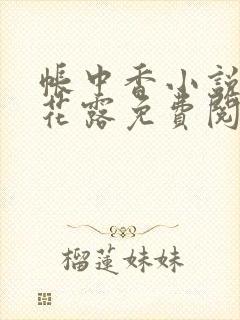 帳中香小說
花露免費閱
榴蓮妹妹